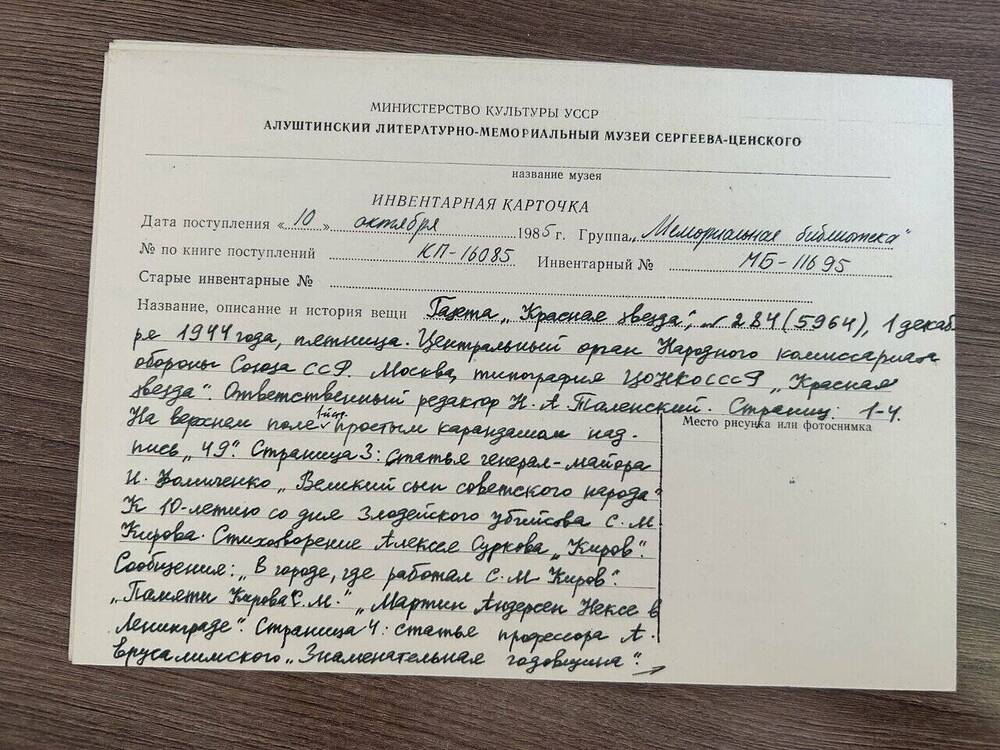 МИНИСТЕРСТВО КУЛЬТУРЫ УССР
АЛУШТИНСКИЙ ЛИТЕРАТУРНО-МЕМОРИАЛЬНЫЙ МУЗЕЙ СЕРГЕЕВА-ЦЕНСКОГО
название музея
ИНВЕНТАРНАЯ КАРТОЧКА
Дата поступления «10» октября 1985 г. Группа „Мемориальная библиотека"
№ по книге поступлений КП-16085 Инвентарный № МБ-11695
Старые инвентарные №
Название, описание и история вещи Газета „Красная звезда", № 284 (5964), 1 декаб
ря 1944 года, пятница. Центральный орган Народного комиссариата
обороны Союза ССР. Москва, типография ЦОНКОСССР „Красная
звезда". Ответственный редактор Н. А Таленский. Страниц: 1-4.
На верхнем поле 1-й стр. простым карандашом над-
пись „49". Страница 3: статья генерал-майора
И. Фомиченко „Великий сын советского народа"
К 10-летию со дня злодейского убийства С. М
Кирова. Стихотворение Алексея Суркова „Киров".
Сообщения: „В городе, где работал С. М Киров".
„Памяти Кирова С. М." „Мартин Андерсен Нексе в
Ленинграде". Страница 4: статья профессора А.
Ерусалимского „Знаменательная годовщина".
Место рисунка или фотоснимка